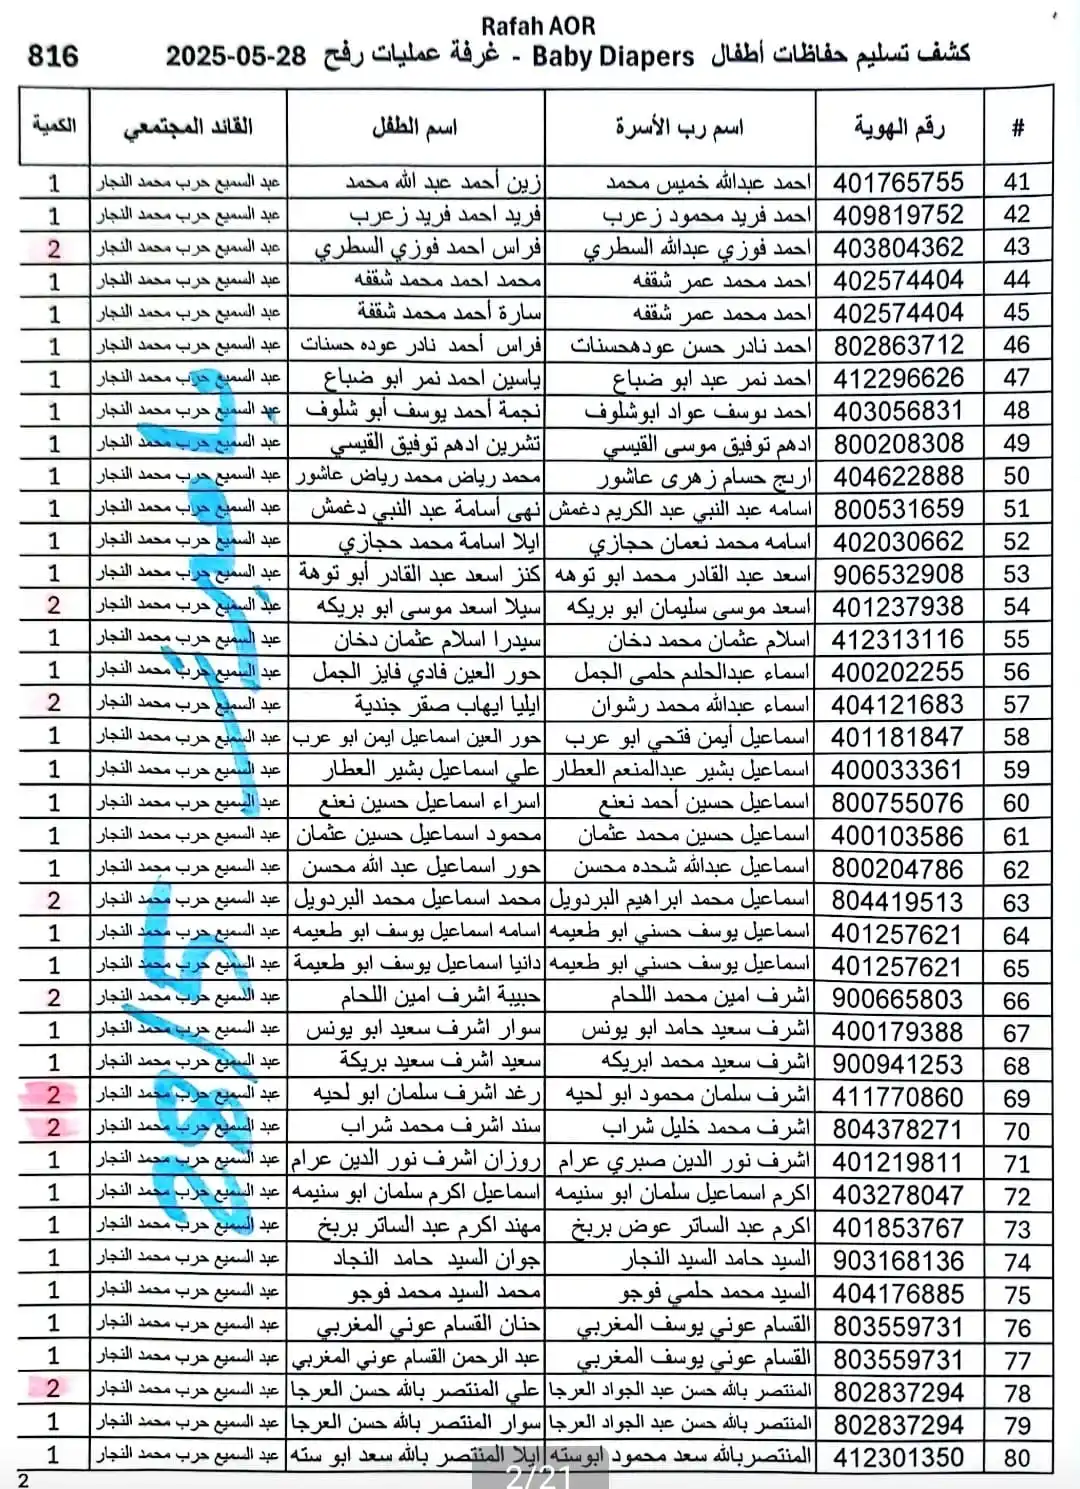 Rafah AOR
816 كشف تسليم حفاظات أطفال Baby Diapers - غرفة عمليات رفح 28-05-2025
# رقم الهوية اسم رب الأسرة اسم الطفل القائد المجتمعي الكمية
41 401765755 احمد عبدالله خميس محمد زين أحمد عبد الله محمد عبد السميع حرب محمد النجار 1
42 409819752 احمد فريد محمود زعرب فريد احمد فريد زعرب عبد السميع حرب محمد النجار 1
43 403804362 احمد فوزي عبدالله السطري فراس احمد فوزي السطري عبد السميع حرب محمد النجار 2
44 402574404 احمد محمد عمر شقفه محمد احمد محمد شقفه عبد السميع حرب محمد النجار 1
45 402574404 احمد محمد عمر شقفه سارة أحمد محمد شقفة عبد السميع حرب محمد النجار 1
46 802863712 احمد نادر حسن عودهحسنات فراس أحمد نادر عوده حسنات عبد السميع حرب محمد النجار 1
47 412296626 احمد نمر عبد ابو ضباع ياسين احمد نمر ابو ضباع عبد السميع حرب محمد النجار 1
48 403056831 احمد يوسف عواد ابوشلوف نجمة أحمد يوسف أبو شلوف عبد السميع حرب محمد النجار 1
49 800208308 ادهم توفيق موسى القيسي تشرين ادهم توفيق القيسي عبد السميع حرب محمد النجار 1
50 404622888 اريج حسام زهرى عاشور محمد رياض محمد رياض عاشور عبد السميع حرب محمد النجار 1
51 800531659 اسامه عبد النبي عبد الكريم دغمش نهى أسامة عبد النبي دغمش عبد السميع حرب محمد النجار 1
52 402030662 اسامه محمد نعمان حجازي ايلا اسامة محمد حجازي عبد السميع حرب محمد النجار 1
53 906532908 اسعد عبد القادر محمد ابو توهه كنز اسعد عبد القادر أبو توهة عبد السميع حرب محمد النجار 1
54 401237938 اسعد موسى سليمان ابو بريكه سيلا اسعد موسى ابو بريكه عبد السميع حرب محمد النجار 2
55 412313116 اسلام عثمان محمد دخان سيدرا اسلام عثمان دخان عبد السميع حرب محمد النجار 1
56 400202255 اسماء عبدالحليم حلمى الجمل حور العين فادي فايز الجمل عبد السميع حرب محمد النجار 1
57 404121683 اسماء عبدالله محمد رشوان ايليا ايهاب صقر جندية عبد السميع حرب محمد النجار 2
58 401181847 اسماعيل أيمن فتحي ابو عرب حور العين اسماعيل ايمن ابو عرب عبد السميع حرب محمد النجار 1
59 400033361 اسماعيل بشير عبدالمنعم العطار علي اسماعيل بشير العطار عبد السميع حرب محمد النجار 1
60 800755076 اسماعيل حسين أحمد نعنع اسراء اسماعيل حسين نعنع عبد السميع حرب محمد النجار 1
61 400103586 اسماعيل حسين محمد عثمان محمود اسماعيل حسين عثمان عبد السميع حرب محمد النجار 1
62 800204786 اسماعيل عبدالله شحده محسن حور اسماعيل عبد الله محسن عبد السميع حرب محمد النجار 1
63 804419513 اسماعيل محمد ابراهيم البردويل محمد اسماعيل محمد البردويل عبد السميع حرب محمد النجار 2
64 401257621 اسماعيل يوسف حسني ابو طعيمه اسامه اسماعيل يوسف ابو طعيمه عبد السميع حرب محمد النجار 1
65 401257621 اسماعيل يوسف حسني ابو طعيمه دانيا اسماعيل يوسف ابو طعيمة عبد السميع حرب محمد النجار 1
66 900665803 اشرف امين محمد اللحام حبيبة اشرف امين اللحام عبد السميع حرب محمد النجار 2
67 400179388 اشرف سعيد حامد ابو يونس سوار اشرف سعيد ابو يونس عبد السميع حرب محمد النجار 1
68 900941253 اشرف سعيد محمد ابريكه سعيد اشرف سعيد بريكة عبد السميع حرب محمد النجار 1
69 411770860 اشرف سلمان محمود ابو لحيه رغد اشرف سلمان ابو لحيه عبد السميع حرب محمد النجار 2
70 804378271 اشرف محمد خليل شراب سند اشرف محمد شراب عبد السميع حرب محمد النجار 2
71 401219811 اشرف نور الدين صبري عرام روزان اشرف نور الدين عرام عبد السميع حرب محمد النجار 1
72 403278047 اكرم اسماعيل سلمان ابو سنيمه اسماعيل اكرم سلمان ابو سنيمه عبد السميع حرب محمد النجار 1
73 401853767 اكرم عبد الساتر عوض بربخ مهند اكرم عبد الساتر بربخ عبد السميع حرب محمد النجار 1
74 903168136 السيد حامد السيد النجار جوان السيد حامد النجاد عبد السميع حرب محمد النجار 1
75 404176885 السيد محمد حلمي فوجو محمد السيد محمد فوجو عبد السميع حرب محمد النجار 1
76 803559731 القسام عوني يوسف المغربي حنان القسام عوني المغربي عبد السميع حرب محمد النجار 1
77 803559731 القسام عوني يوسف المغربي عبد الرحمن القسام عوني المغربي عبد السميع حرب محمد النجار 1
78 802837294 المنتصر بالله حسن عبد الجواد العرجا علي المنتصر بالله حسن العرجا عبد السميع حرب محمد النجار 2
79 802837294 المنتصر بالله حسن عبد الجواد العرجا سوار المنتصر بالله حسن العرجا عبد السميع حرب محمد النجار 1
80 412301350 المنتصربالله سعد محمود ابوسته ايلا المنتصر بالله سعد ابو سته عبد السميع حرب محمد النجار 1
2
2/21